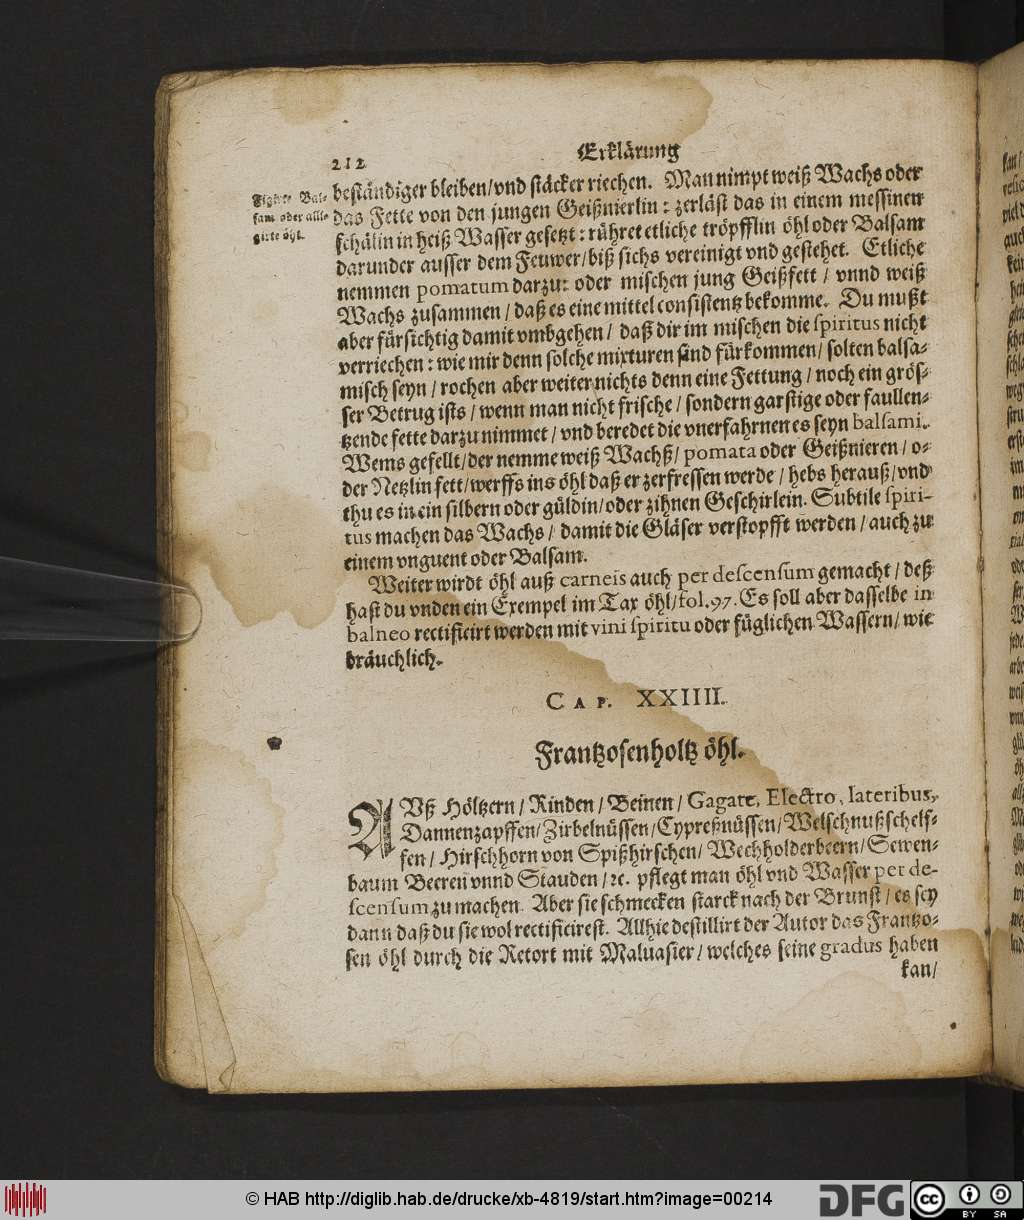 212 Erklärung
Bal-
sam oder alli-
girte öhl.
beständiger bleiben/vnd stäcker riechen. Man nimpt weiß Wachs oder
das Fette von den jungen Geißnierlin: zerläst das in einem messinen
schälin in heiß Wasser gesetzt: rühret etliche tröpfflin öhl oder Balsam
darunder ausser dem Feuwer/biß sichs vereinigt vnd gestehet. Etliche
nemmen pomatum darzu: oder mischen jung Geißfett/ vnnd weiß
Wachs zusammen/ daß es eine mittel consistentz bekomme. Du mußt
aber fürsichtig damit vmbgehen/ daß dir im mischen die spiritus nicht
verriechen: wie mir denn solche mixturen sind fürkommen/ solten balsa-
misch seyn/ rochen aber weiter nichts denn eine Fettung/ noch ein grös-
ser Betrug ists/ wenn man nicht frische/ sondern garstige oder faullen-
tzende fette darzu nimmet/ vnd beredet die vnerfahrnen es seyn balsami.
Wems gefellt/ der nemme weiß Wachß/ pomata oder Geißnieren/ o-
der Netzlin fett/werffs ins öhl daß er zerfressen werde/ hebs herauß/vnd
thu es in ein silbern oder güldin/oder zihnen Geschirlein. Subtile spiri-
tus machen das Wachs/ damit die Gläser verstopfft werden/ auch zu
einem vnguent oder Balsam.
Weiter wirdt öhl auß carneis auch per descensum gemacht/ deß
hast du vnden ein Exempel im Tax öhl/fol.97. Es soll aber dasselbe in
balneo rectificirt werden mit vini spiritu oder füglichen Wassern/ wie
bräuchlich.
CAP. XXIIII.
Frantzosenholtz öhl.
AVß Höltzern/ Rinden/ Beinen/ Gagate, Electro, lateribus,
Dannenzapffen/Zirbelnüssen/Cypreßnüssen/Welschnußschelf-
fen/ Hirschhorn von Spißhirschen/ Wechholderbeern/Sewen-
baum Beeren vnnd Stauden/ ꝛc. pflegt man öhl vnd Wasser per de-
scensum zu machen. Aber sie schmecken starck nach der Brunst/ es sey
dann daß du sie wol rectificirest. Allhie destillirt der Autor das Frantzo-
sen öhl durch die Retort mit Maluasier/ welches seine gradus haben
kan/
© HAB http://diglib.hab.de/drucke/xb-4819/start.htm?image=00214
DFG
cc BY SA